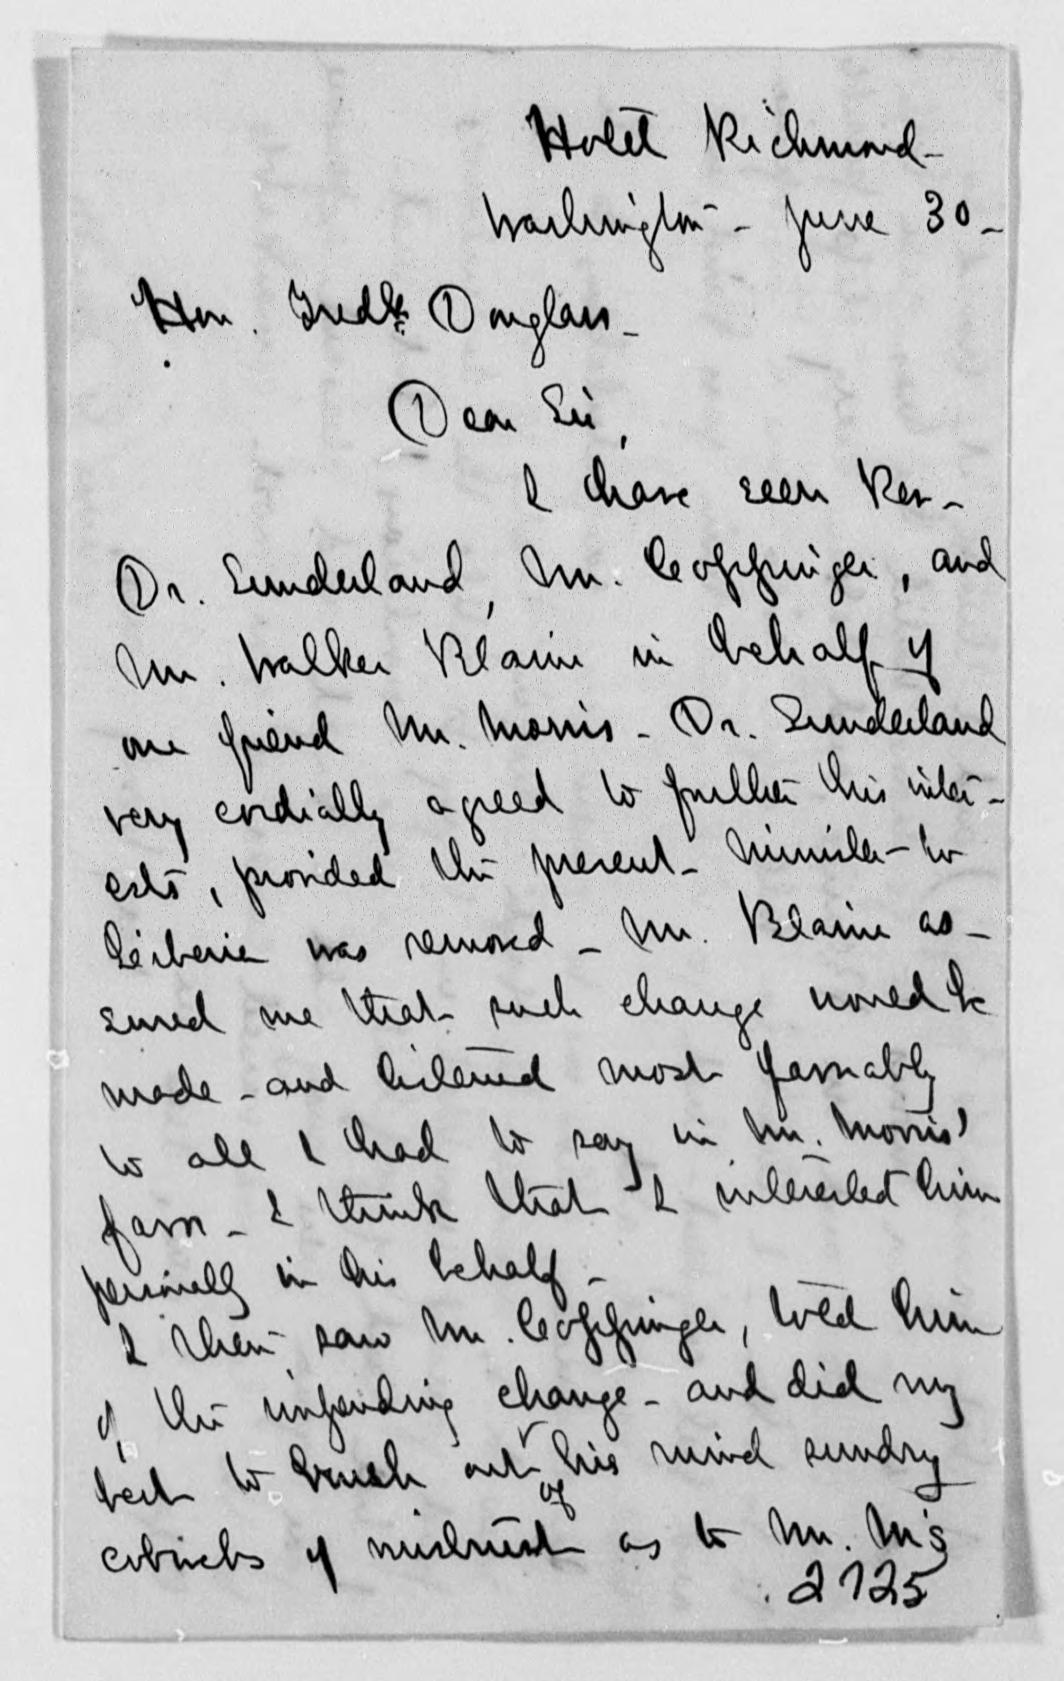 Hotel Richmond -
Washington - June 30 -
Hon. Fredk Douglass -
Dear Sir,
I have seen Rev -
Dr. Sunderland, Mr. Coppinger, and
Mr. Walker Blaine in behalf of
our friend Mr. Morris - Dr. Sunderland
very cordially agreed to further his inter-
ests, provided the present Minister to
Liberia was removed - Mr. Blaine as-
sured me that such change would be
made - and listened most favorably
to all I had to say in Mr. Morris'
favor - I think that I interested him
personally in his behalf -
I then saw Mr. Coppinger, told him
of the impending change - and did my
best to brush out of his mind sundry
cobwebs of mistrust as to Mr. M's
2725